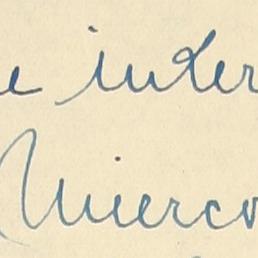 e inter
Mierco